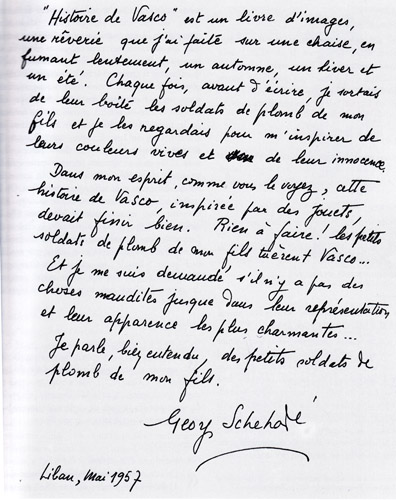 "Histoire de Vasco" est un livre d'images,
une rêverie que j'ai faite sur une chaise, en
fumant lentement, un automne, un hiver et
un été. Chaque fois, avant d'écrire, je sortais
de leur boîte les soldats de plomb de mon
fils et je les regardais pour m'inspirer de
leurs couleurs vives et de leur innocence.
Dans mon esprit, comme vous le voyez, cette
histoire de Vasco, inspirée par des jouets,
devait finir bien. Rien à faire! les petits
soldats de plomb de mon fils tuèrent Vasco...
Et je me suis demandé s'il n'y a pas des
choses maudites jusque dans leur représentation
et leur apparence les plus charmantes...
Je parle, bien entendu, des petits soldats de
plomb de mon fils.
Georges Schehadé
Liban, Mai 1957